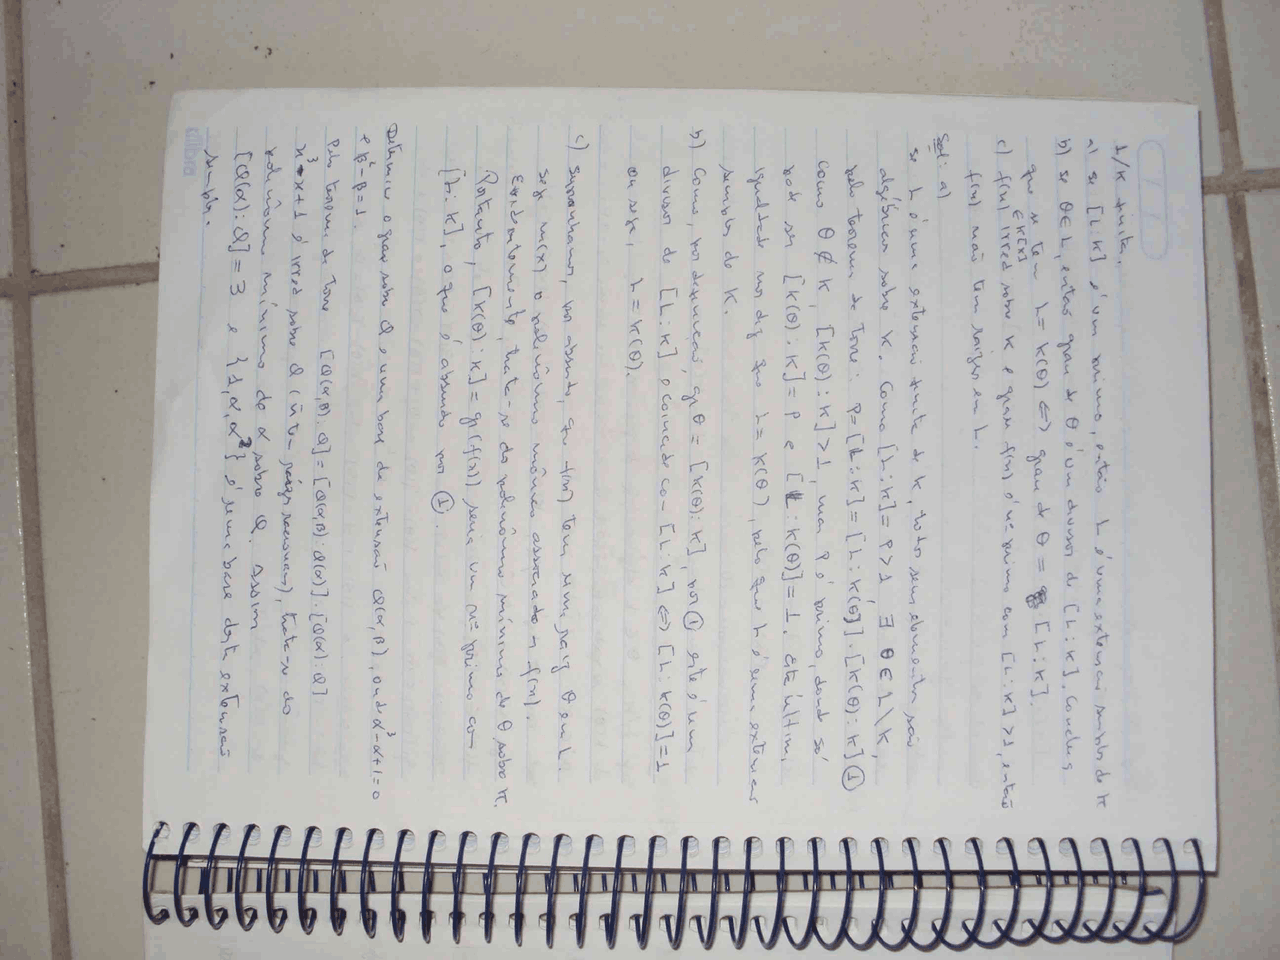 L/K finita,
a) se [L:K] é um primo, então L é uma extensão simples de K
b) se θ ∈ L, então grau de θ é um divisor de [L:K]. Conclua
que se tem L = K(θ) ⇔ grau de θ = [L:K].
c) f(x) ∈ K[x] irred sobre K e grau f(x) é nº primo com [L:K] > 1, então
f(x) não tem raízes em L.
Sol: a)
se L é uma extensão finita de K, todos seus elementos são
algébricos sobre K. Como [L:K] = P > 1, ∃ θ ∈ L \ K,
pelo teorema da Torre: P = [L:K] = [L:K(θ)].[K(θ):K] ①
como θ ∉ K, [K(θ):K] > 1, mas P é primo, donde só
pode ser [K(θ):K] = P e [L:K(θ)] = 1. Esta última
igualdade nos diz que L = K(θ), pelo que L é uma extensão
simples de K.
b) Como, por definição, gr θ = [K(θ):K], por ① este é um
divisor de [L:K] e coincide co- [L:K] ⇔ [L:K(θ)] = 1
ou seja, L = K(θ).
c) Suponhamos, por absurdo, que f(x) tem uma raiz θ em L.
seja m(x) o polinômio mônico associado a f(x).
Evidentemente, trata-se do polinômio mínimo de θ sobre K.
Portanto, [K(θ):K] = gr(f(x)) seria um nº primo co-
[L:K], o que é absurdo por ①.
Determine o grau sobre Q e uma base da extensão Q(α,β), onde α³-α+1=0
e β²-β=1.
Pelo teorema da Torre [Q(α,β):Q] = [Q(α,β):Q(α)].[Q(α):Q]
x³-x+1 é irred sobre Q (ñ tem raízes racionais), trata-se do
polinômio mínimo de α sobre Q. Assim
[Q(α):Q] = 3 e {1,α,α²} é uma base desta extensão
simples.